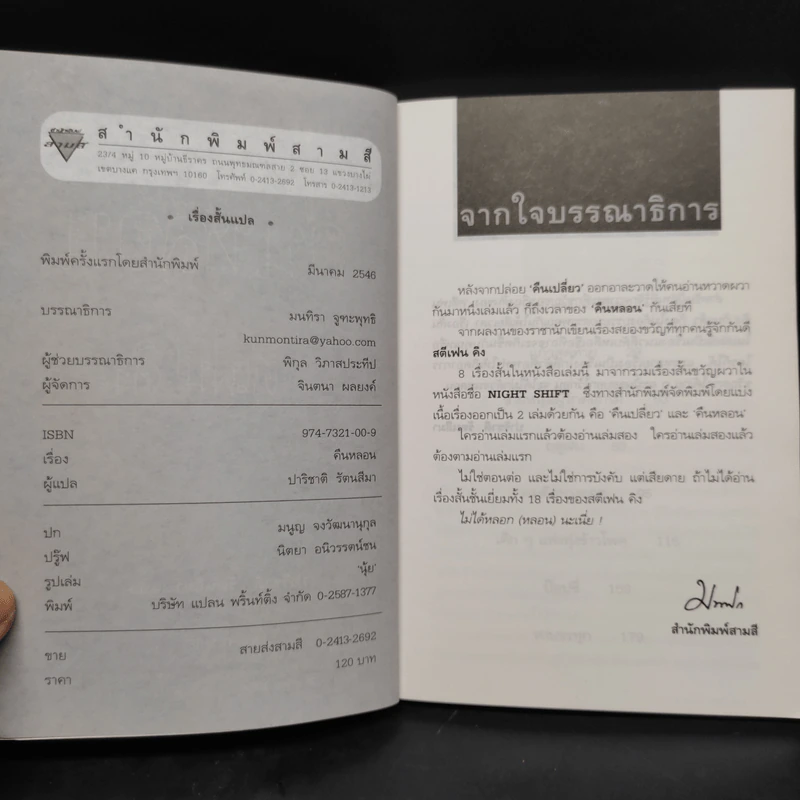 สามสี
สำนักพิมพ์สามสี
23/4 หมู่ 10 หมู่บ้านธีราคร ถนนพุทธมณฑลสาย 2 ซอย 13 แขวงบางไผ่
เขตบางแค กรุงเทพฯ 10160 โทรศัพท์ 0-2413-2692 โทรสาร 0-2413-1213
• เรื่องสั้นแปล •
พิมพ์ครั้งแรกโดยสำนักพิมพ์ มีนาคม 2546
บรรณาธิการ มนทิรา จูฑะพุทธิ
kunmontira@yahoo.com
ผู้ช่วยบรรณาธิการ พิกุล วิภาสประทีป
ผู้จัดการ จินตนา ผลยงค์
ISBN 974-7321-00-9
เรื่อง คืนหลอน
ผู้แปล ปาริชาติ รัตนสีมา
ปก มนูญ จงวัฒนานุกุล
ปรู๊ฟ นิตยา อนิวรรตน์ชน
รูปเล่ม 'นุ้ย'
พิมพ์ บริษัท แปลน พริ้นท์ติ้ง จำกัด 0-2587-1377
ขาย สายส่งสามสี 0-2413-2692
ราคา 120 บาท
จากใจบรรณาธิการ
หลังจากปล่อย 'คืนเปลี่ยว' ออกอาละวาดให้คนอ่านหวาดผวา
กันมาหนึ่งเล่มแล้ว ก็ถึงเวลาของ 'คืนหลอน' กันเสียที
จากผลงานของราชานักเขียนเรื่องสยองขวัญที่ทุกคนรู้จักกันดี
สตีเฟน คิง
8 เรื่องสั้นในหนังสือเล่มนี้ มาจากรวมเรื่องสั้นขวัญผวาใน
หนังสือชื่อ NIGHT SHIFT ซึ่งทางสำนักพิมพ์จัดพิมพ์โดยแบ่ง
เนื้อเรื่องออกเป็น 2 เล่มด้วยกัน คือ 'คืนเปลี่ยว' และ 'คืนหลอน'
ใครอ่านเล่มแรกแล้วต้องอ่านเล่มสอง ใครอ่านเล่มสองแล้ว
ต้องตามอ่านเล่มแรก
ไม่ใช่ตอนต่อ และไม่ใช่การบังคับ แต่เสียดาย ถ้าไม่ได้อ่าน
เรื่องสั้นชั้นเยี่ยมทั้ง 18 เรื่องของสตีเฟน คิง
ไม่ได้หลอก (หลอน) นะเนี่ย !
สำนักพิมพ์สามสี